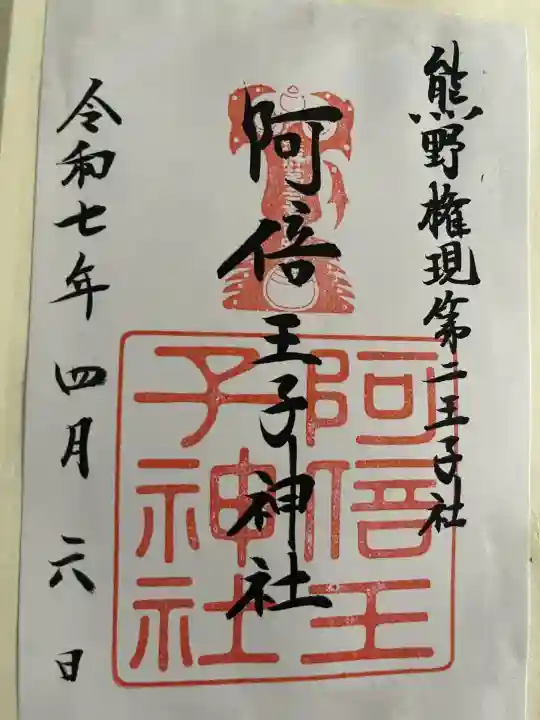 熊野権現第二王子社
阿倍王子神社
阿倍王
子神社
令和七年四月六日